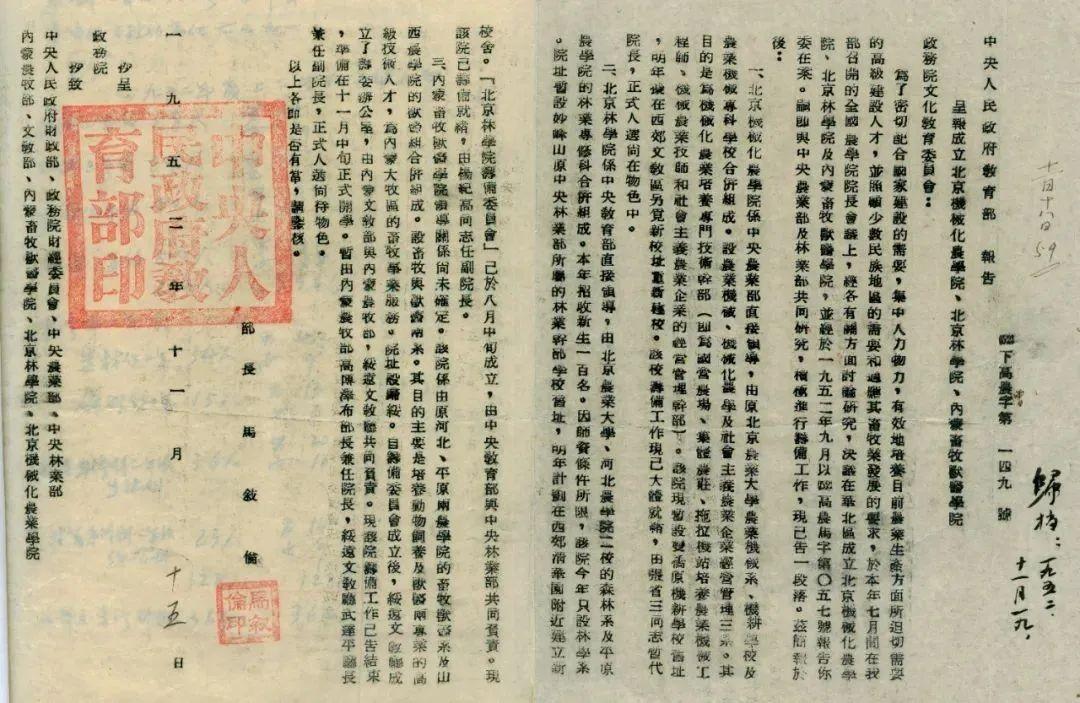 十一月十八日
59
歸檔：一九五二、
十一月十九、
中央人民政府敎育部 報告
下高農字第 一四九 號
呈報成立北京機械化農學院、北京林學院、內蒙畜牧獸醫學院
政務院文化敎育委員會：
爲了密切配合國家建設的需要，集中人力物力，有效地培養目前農業生產方面所迫切需要
的高級建設人才，並照顧少數民族地區的需要和適應其畜牧業發展的要求，於本年七月間在我
部召開的全國農學院院長會議上，經各有關方面討論研究，決議在華北區成立北京機械化農學
院、北京林學院及內蒙畜牧獸醫學院，並經於一九五二年九月以 高農馬字第〇五七號報告你
委在案。嗣卽與中央農業部及林業部共同研究，積極進行籌備工作，現已告一段落。茲簡報於
後：
一、北京機械化農學院係中央農業部直接領導，由原北京農業大學農業機械系、機耕學校及
農業機械專科學校合併組成。設農業機械、機械化農學及社會主義農業企業經營管理三系。其
目的是爲機械化農業培養專門技術幹部（卽爲國營農場、集體農莊、拖拉機站培養農業機械工
程師、機械農業技師和社會主義農業企業的經營管理幹部）。該院現暫設雙橋原機耕學校舊址
，明年擬在西郊文敎區另覓新校址重新建校。該校籌備工作現已大體就緒，由張省三同志暫代
院長，正式人選尚在物色中。
二、北京林學院係中央敎育部直接領導，由北京農業大學、河北農學院二校的森林系及平原
農學院的林業專修科合併組成。本年招收新生一百名。因師資條件所限，該院今年只設林學系
。院址暫設妙峰山原中央林業部所辦的林業幹部學校舊址，明年計劃在西郊清華園附近建立新
校舍。「北京林學院籌備委員會」已於八月中旬成立，由中央敎育部與中央林業部共同負責。現
該院已籌備就緒，由楊紀高同志任副院長。
三、內蒙畜牧獸醫學院領導關係尚未確定。該院係由原河北、平原兩農學院的畜牧獸醫系及山
西農學院的獸醫組合併組成。設畜牧與獸醫兩系。其目的主要是培養動物飼養及獸醫兩專業的高
級技術人才，爲內蒙大牧區的畜牧事業服務。院址設歸綏。自籌備委員會成立後，綏遠文敎廳成
立了籌委辦公室，由內蒙文敎部與內蒙農牧部，綏遠文敎廳共同負責。現該院籌備工作已告結束
，準備在十一月中旬正式開學。暫由內蒙農牧部高博澤布部長兼任院長，綏遠文敎廳武達平廳長
兼任副院長，正式人選尚待物色。
以上各節是否有當，請鑒核。
部長馬敍倫
馬敍倫印
一九五二年十一月十五日
中央人民政府敎育部印
抄呈
政務院
抄致
中央人民政府財政部、政務院財經委員會、中央農業部、中央林業部
內蒙農牧部、文敎部、內蒙畜牧獸醫學院、北京林學院、北京機械化農業學院